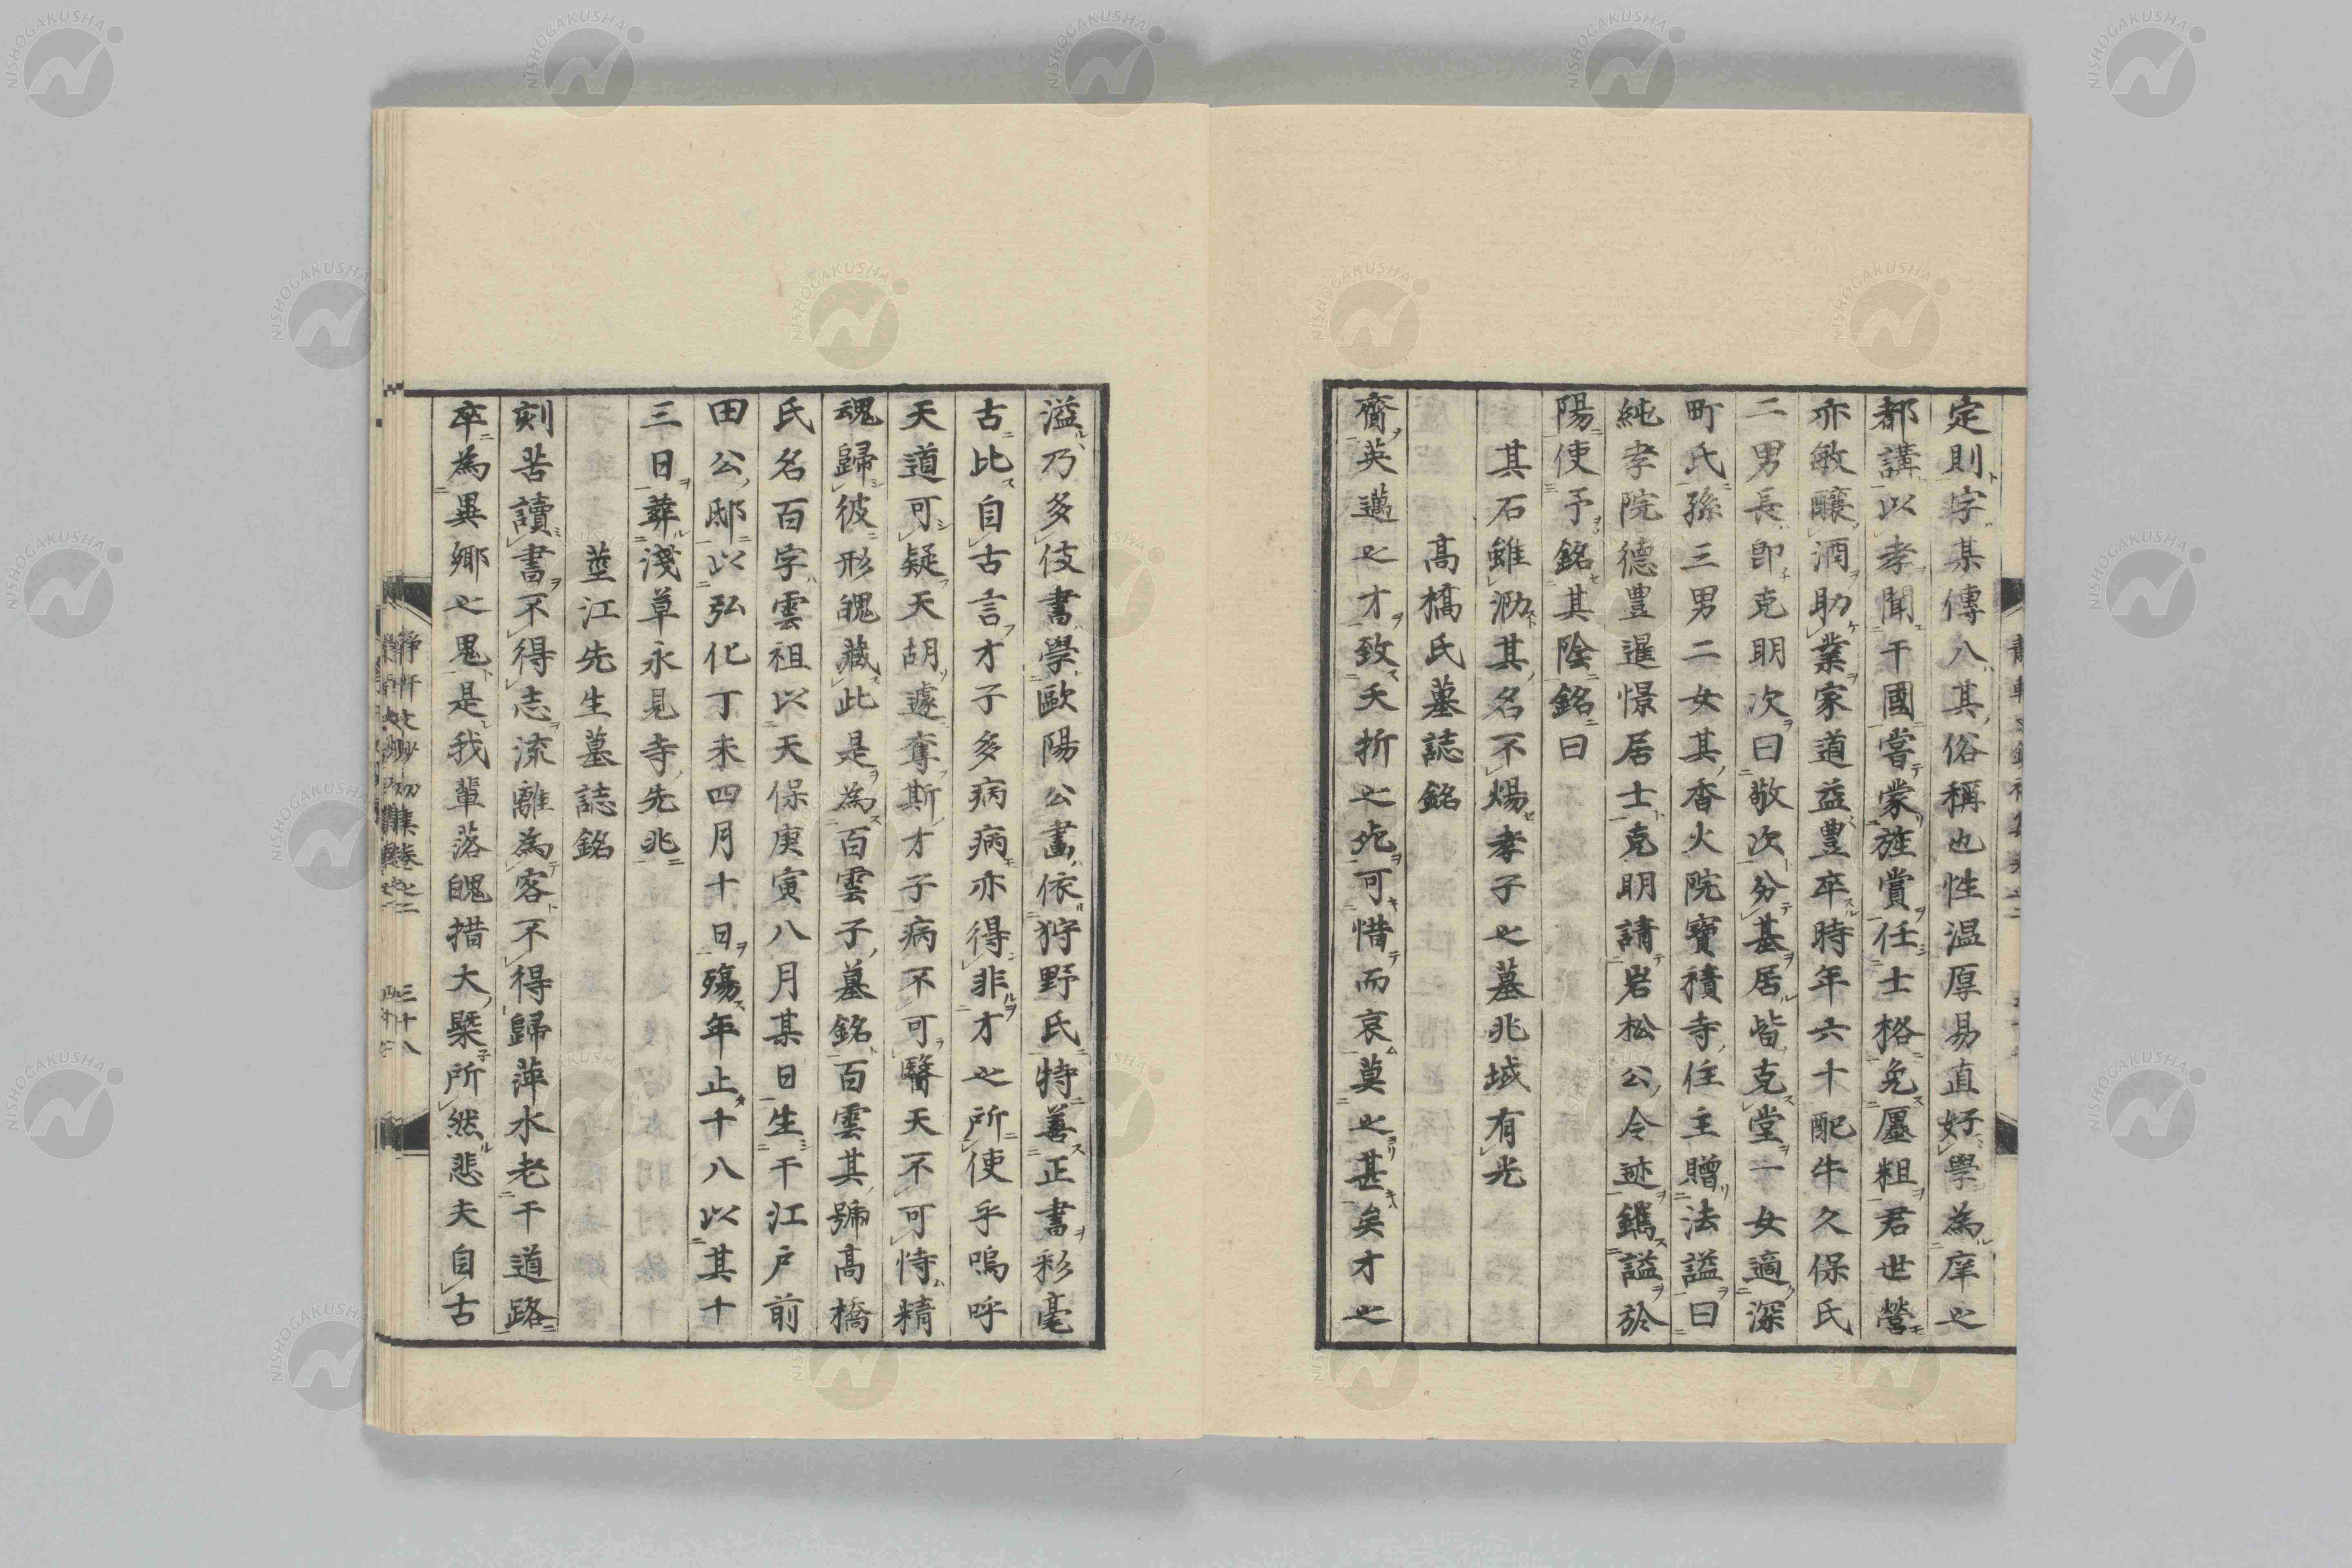 定則字某傳八其俗稱也性温厚易直好學為庠之
都講以孝聞于國嘗蒙旌賞任士格免廛租君世營
亦敏釀酒助業家道益豊卒時年六十配牛久保氏
二男長即克明次曰敬次分基居皆克堂一女適深
町氏孫三男二女其香火院寶積寺住主贈法謚曰
純孝院德豊暹憬居士克明請岩松公令迹鐫謚於
陽使予銘其陰銘曰
其石雖泐其名不煬孝子之墓兆域有光
高橋氏墓誌銘
齎英邁之才致夭折之死可惜而哀莫之甚矣才之
溢乃多伎書學歐陽公畫依狩野氏特善正書彩毫
古比自古言才子多病病亦得非才之所使乎嗚呼
天道可疑天胡遽奪斯才子病不可醫天不可恃精
魂歸彼形魄藏此是為百雲子墓銘百雲其號高橋
氏名百字雲祖以天保庚寅八月某日生于江戶前
田公邸以弘化丁未四月十日殤年止十八以其十
三日葬淺草永見寺先兆
莖江先生墓誌銘
刻苦讀書不得志流離為客不得歸萍水老于道路
卒為異鄉之鬼是我輩落魄措大槩所然悲夫自古
靜軒文鈔初集卷之二 三十八